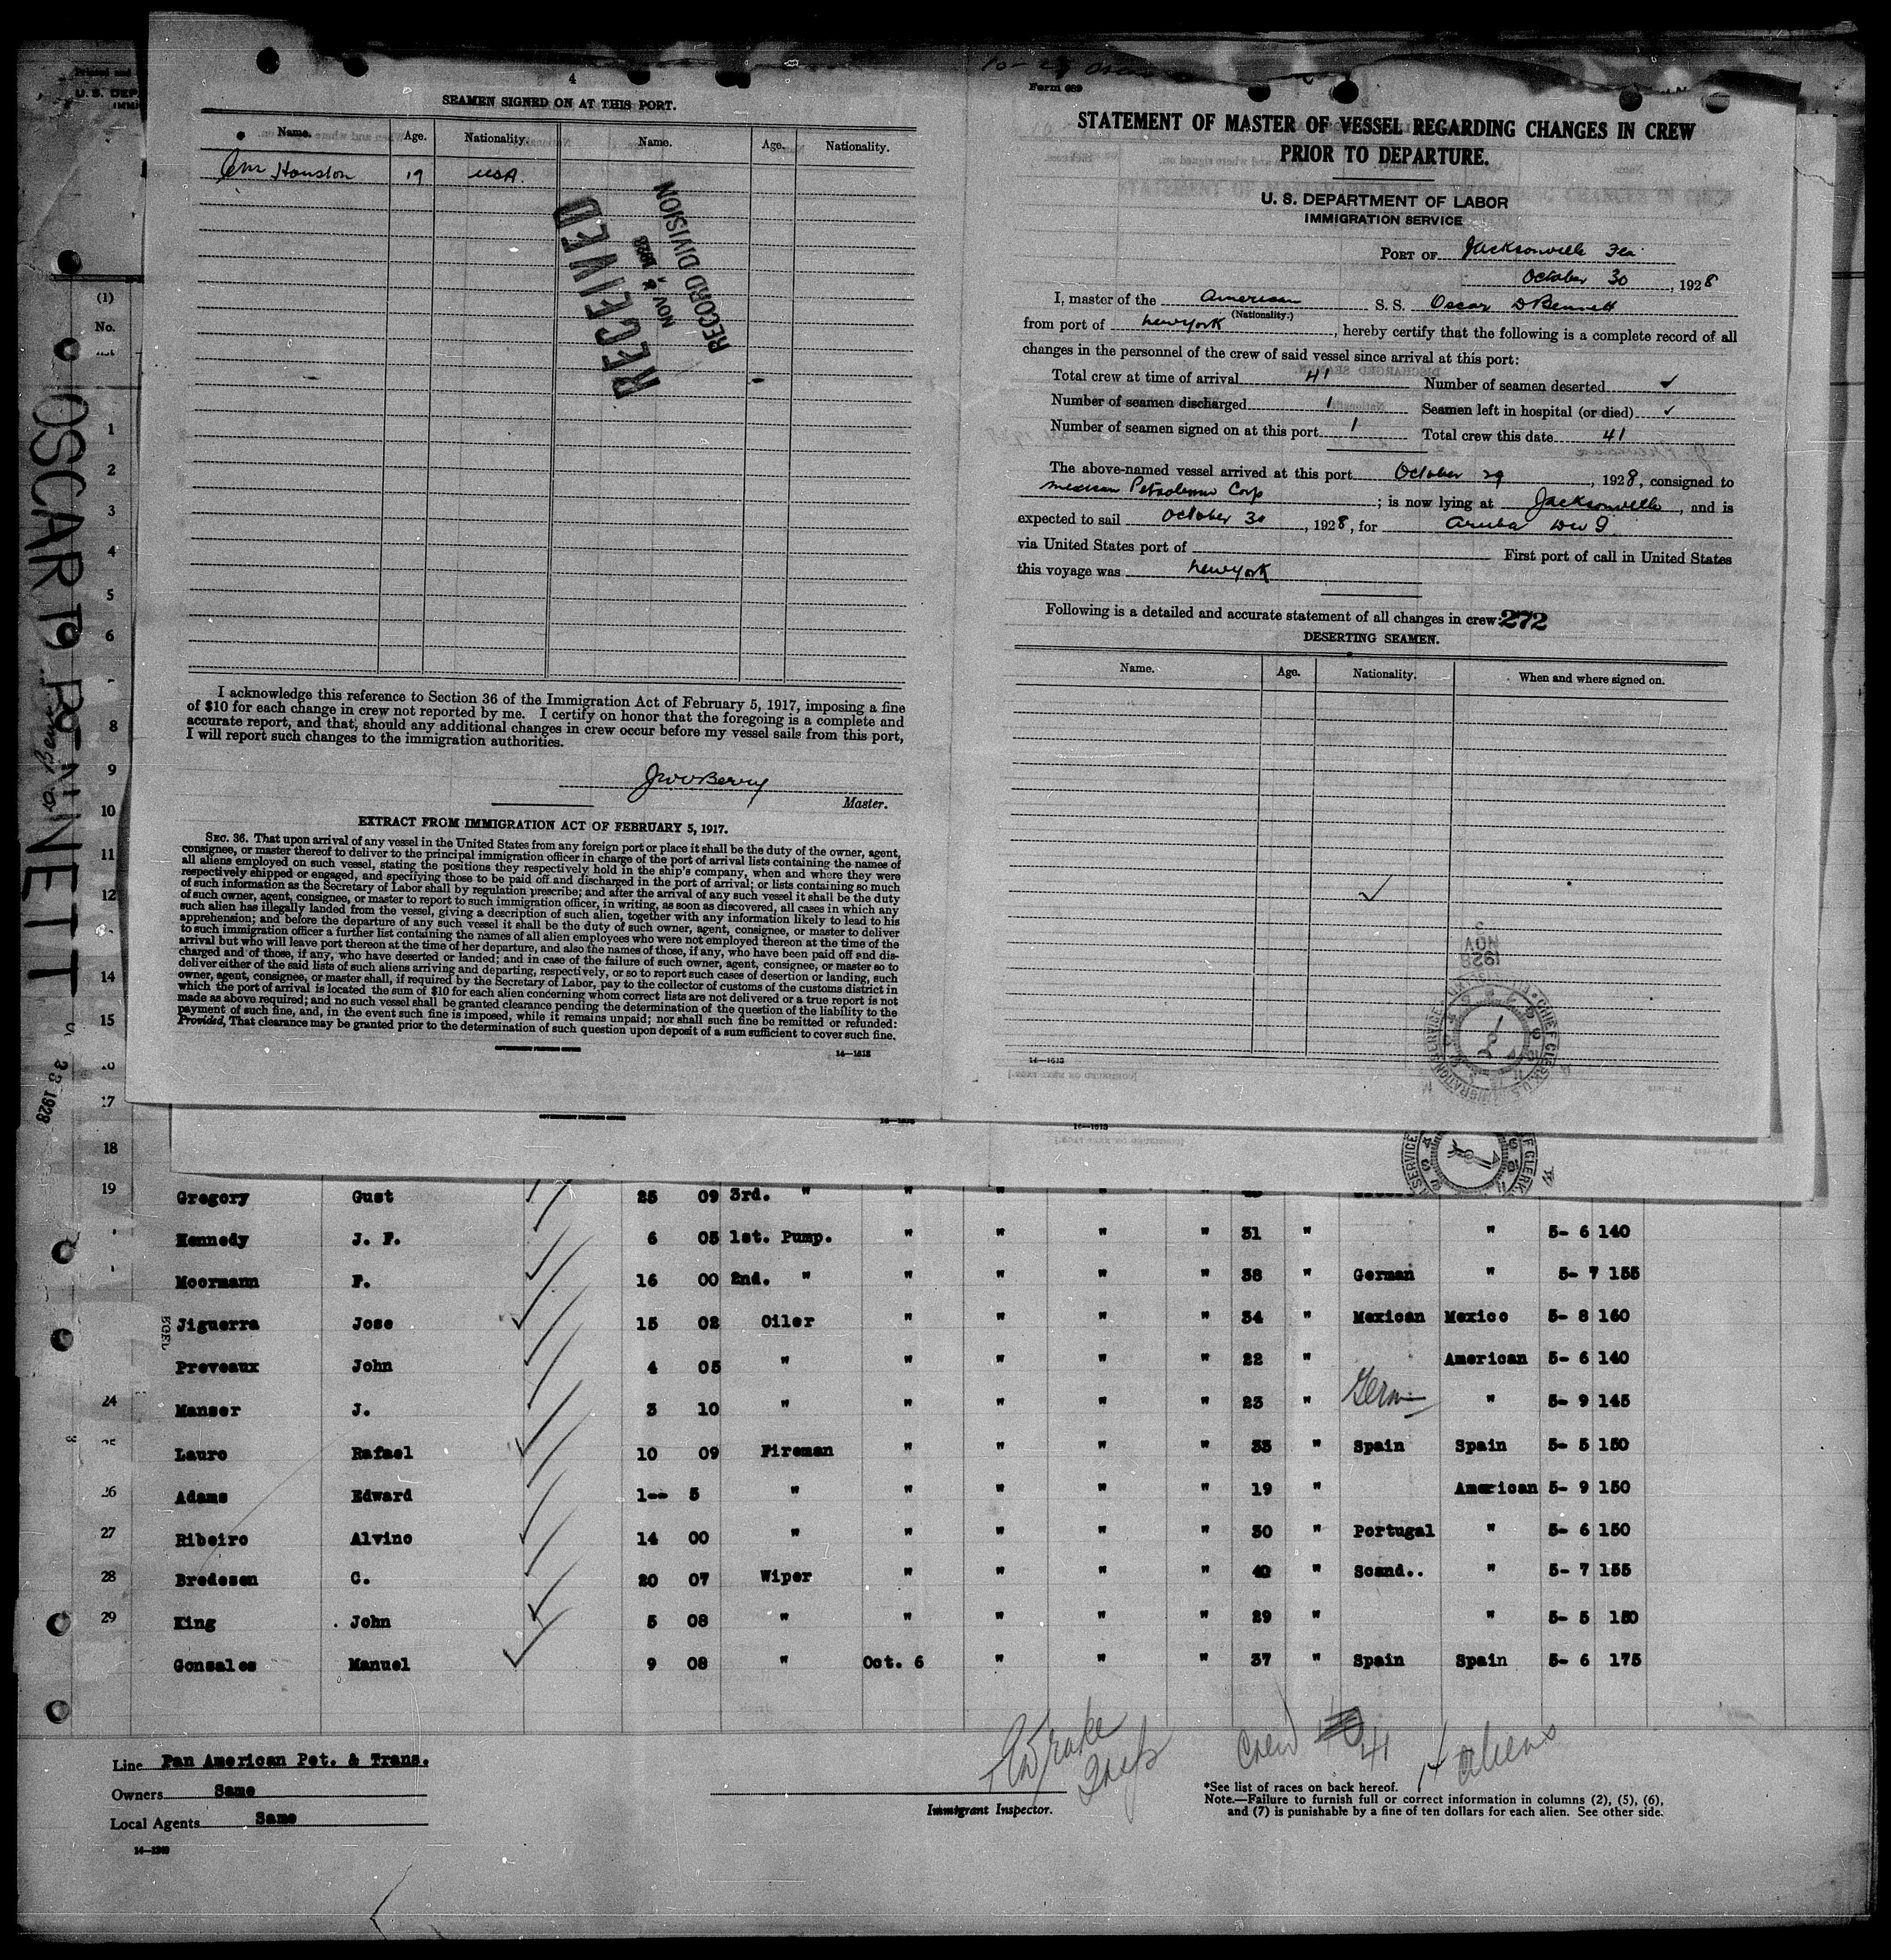 4
SEAMEN SIGNED ON AT THIS PORT.
Name. Age. Nationality. Name. Age. Nationality.
Houston 19 USA.
RECEIVED
NOV 1928
RECORD DIVISION
I acknowledge this reference to Section 36 of the Immigration Act of February 5, 1917, imposing a fine
of $10 for each change in crew not reported by me. I certify on honor that the foregoing is a complete and
accurate report, and that, should any additional changes in crew occur before my vessel sails from this port,
I will report such changes to the immigration authorities.
Berry
Master.
EXTRACT FROM IMMIGRATION ACT OF FEBRUARY 5, 1917.
SEC. 36. That upon arrival of any vessel in the United States from any foreign port or place it shall be the duty of the owner, agent,
consignee, or master thereof to deliver to the principal immigration officer in charge of the port of arrival lists containing the names of
all aliens employed on such vessel, stating the positions they respectively hold in the ship's company, when and where they were
respectively shipped or engaged, and specifying those to be paid off and discharged in the port of arrival; or lists containing so much
of such information as the Secretary of Labor shall by regulation prescribe; and after the arrival of any such vessel it shall be the duty
of such owner, agent, consignee, or master to report to such immigration officer, in writing, as soon as discovered, all cases in which any
such alien has illegally landed from the vessel, giving a description of such alien, together with any information likely to lead to his
apprehension; and before the departure of any such vessel it shall be the duty of such owner, agent, consignee, or master to deliver
to such immigration officer a further list containing the names of all alien employees who were not employed thereon at the time of the
arrival but who will leave port thereon at the time of her departure, and also the names of those, if any, who have been paid off and dis-
charged and of those, if any, who have deserted or landed; and in case of the failure of such owner, agent, consignee, or master so to
deliver either of the said lists of such aliens arriving and departing, respectively, or so to report such cases of desertion or landing, such
owner, agent, consignee, or master shall, if required by the Secretary of Labor, pay to the collector of customs of the customs district in
which the port of arrival is located the sum of $10 for each alien concerning whom correct lists are not delivered or a true report is not
made as above required; and no such vessel shall be granted clearance pending the determination of the question of the liability to the
payment of such fine, and, in the event such fine is imposed, while it remains unpaid; nor shall such fine be remitted or refunded:
Provided, That clearance may be granted prior to the determination of such question upon deposit of a sum sufficient to cover such fine.
GOVERNMENT PRINTING OFFICE 14—1613
Form 689
STATEMENT OF MASTER OF VESSEL REGARDING CHANGES IN CREW
PRIOR TO DEPARTURE.
U. S. DEPARTMENT OF LABOR
IMMIGRATION SERVICE
PORT OF Jacksonville Fla.
October 30, 1928
I, master of the American S. S. Oscar D Bennett
(Nationality.)
from port of New York, hereby certify that the following is a complete record of all
changes in the personnel of the crew of said vessel since arrival at this port:
Total crew at time of arrival 41 Number of seamen deserted ✓
Number of seamen discharged 1 Seamen left in hospital (or died) ✓
Number of seamen signed on at this port 1 Total crew this date 41
The above-named vessel arrived at this port October 29, 1928, consigned to
Mexican Petroleum Corp; is now lying at Jacksonville, and is
expected to sail October 30, 1928, for Aruba DWI.
via United States port of First port of call in United States
this voyage was New York
Following is a detailed and accurate statement of all changes in crew: 272
DESERTING SEAMEN.
Name. Age. Nationality. When and where signed on.
14—1613
NOV 1928
OSCAR D BENNETT
1928
(1)
No.
1
2
3
4
5
6
8
9
10
11
12
14
15
17
18
19 Gregory Gust 25 09 3rd. " " " " "
Kennedy J. F. 6 05 1st. Pump. " " " " 31 " " 5- 6 140
Moormann F. 16 00 2nd. " " " " " 38 " German " 5- 7 155
Jiguerra Jose 15 02 Oiler " " " " 34 " Mexican Mexico 5- 8 160
Preveaux John 4 05 " " " " " 22 " American 5- 6 140
24 Manser J. 3 10 " " " " " 23 " Germ " 5- 9 145
Lauro Rafael 10 09 Fireman " " " " 33 " Spain Spain 5- 5 150
26 Adams Edward 1-- 5 " " " " " 19 " American 5- 9 150
27 Ribeiro Alvino 14 00 " " " " " 30 " Portugal " 5- 6 150
28 Bredesen C. 20 07 Wiper " " " " 40 " Scand.. " 5- 7 155
29 King John 5 08 " " " " " 29 " " 5- 5 150
Gonsales Manuel 9 08 " Oct. 6 " " " 37 " Spain Spain 5- 6 175
Line Pan American Pet. & Trans.
Owners Same
Local Agents Same
Drake Insp
Immigrant Inspector.
Crew 41 aliens
*See list of races on back hereof.
Note.—Failure to furnish full or correct information in columns (2), (5), (6),
and (7) is punishable by a fine of ten dollars for each alien. See other side.